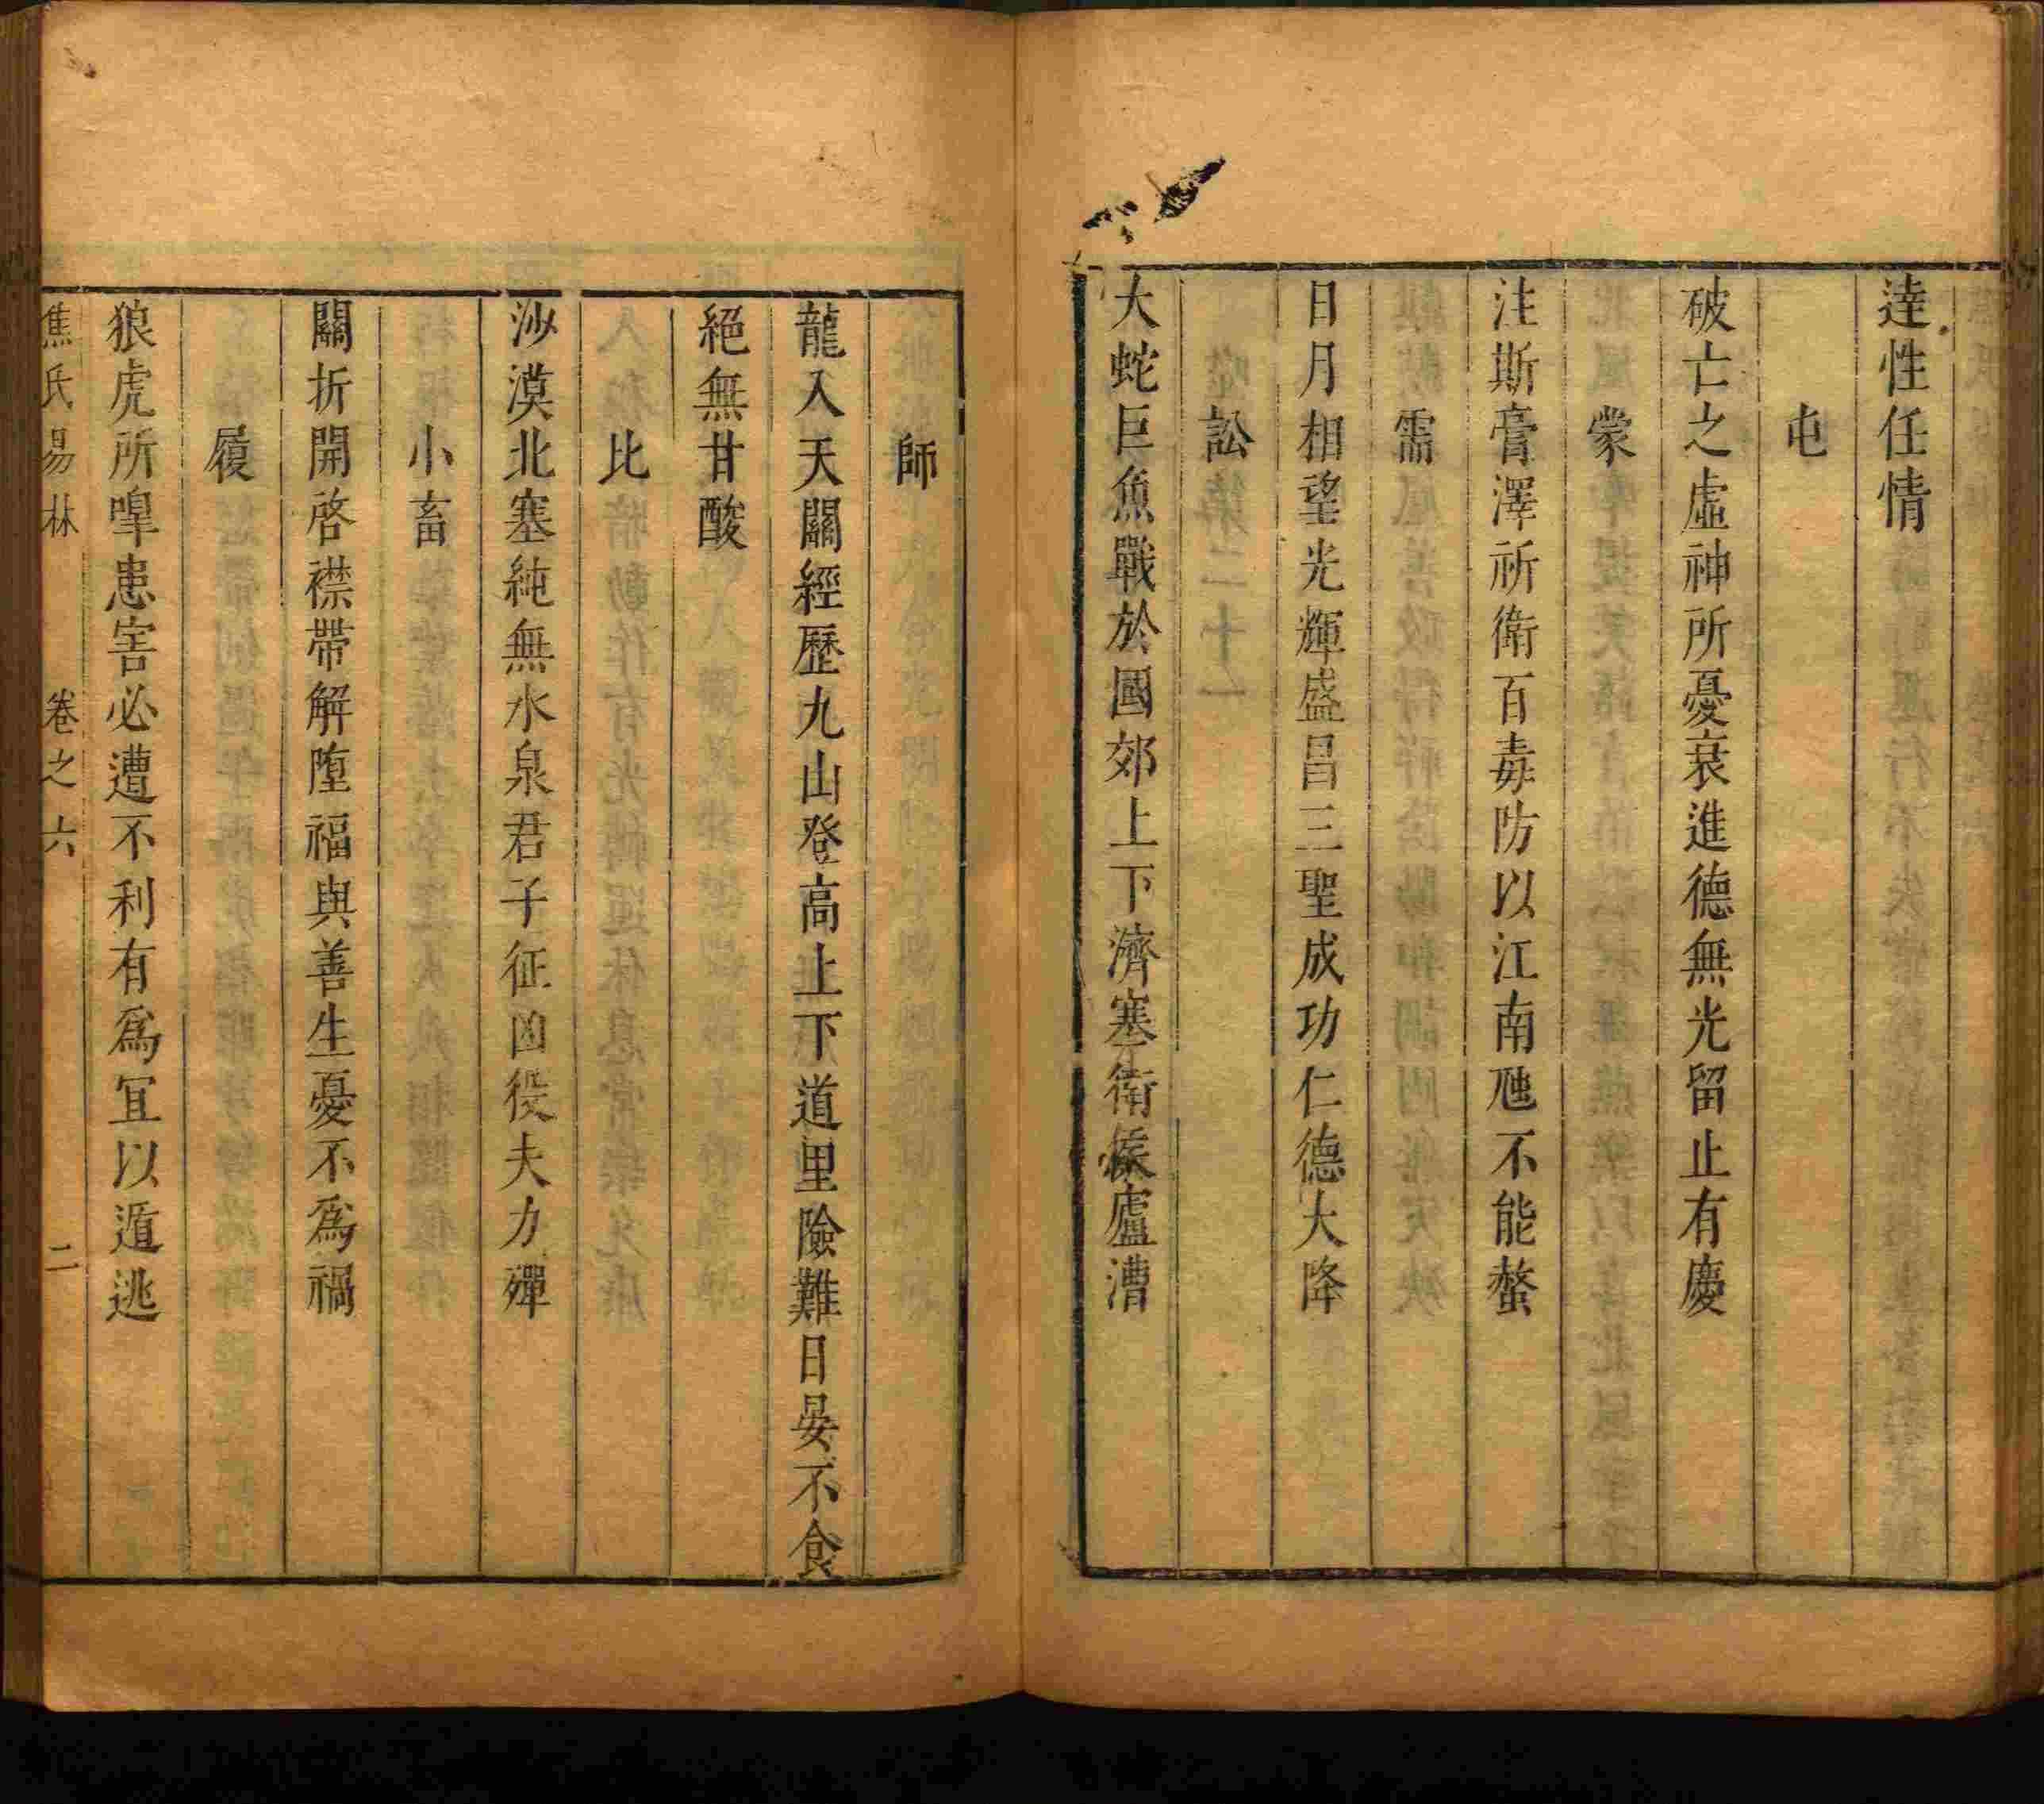 逹性任情
屯
破亡之虛神所憂衰進德無光留止有慶
蒙
注斯膏澤祈衛百毒防以江南虺不能螫
需
日月相望光輝盛昌三聖成功仁德大降
訟
大蛇巨魚戰於國郊上下濟塞衛侯廬漕
師
龍入天關經歷九山登高上下道里險難日晏不食
絕無甘酸
比
沙漠北塞純無水泉君子征凶役夫力殫
小畜
關折開啓襟帶解墮福與善生憂不爲禍
履
狼虎所嘷患害必遭不利有爲冝以遁逃
焦氏易林 卷之六 二